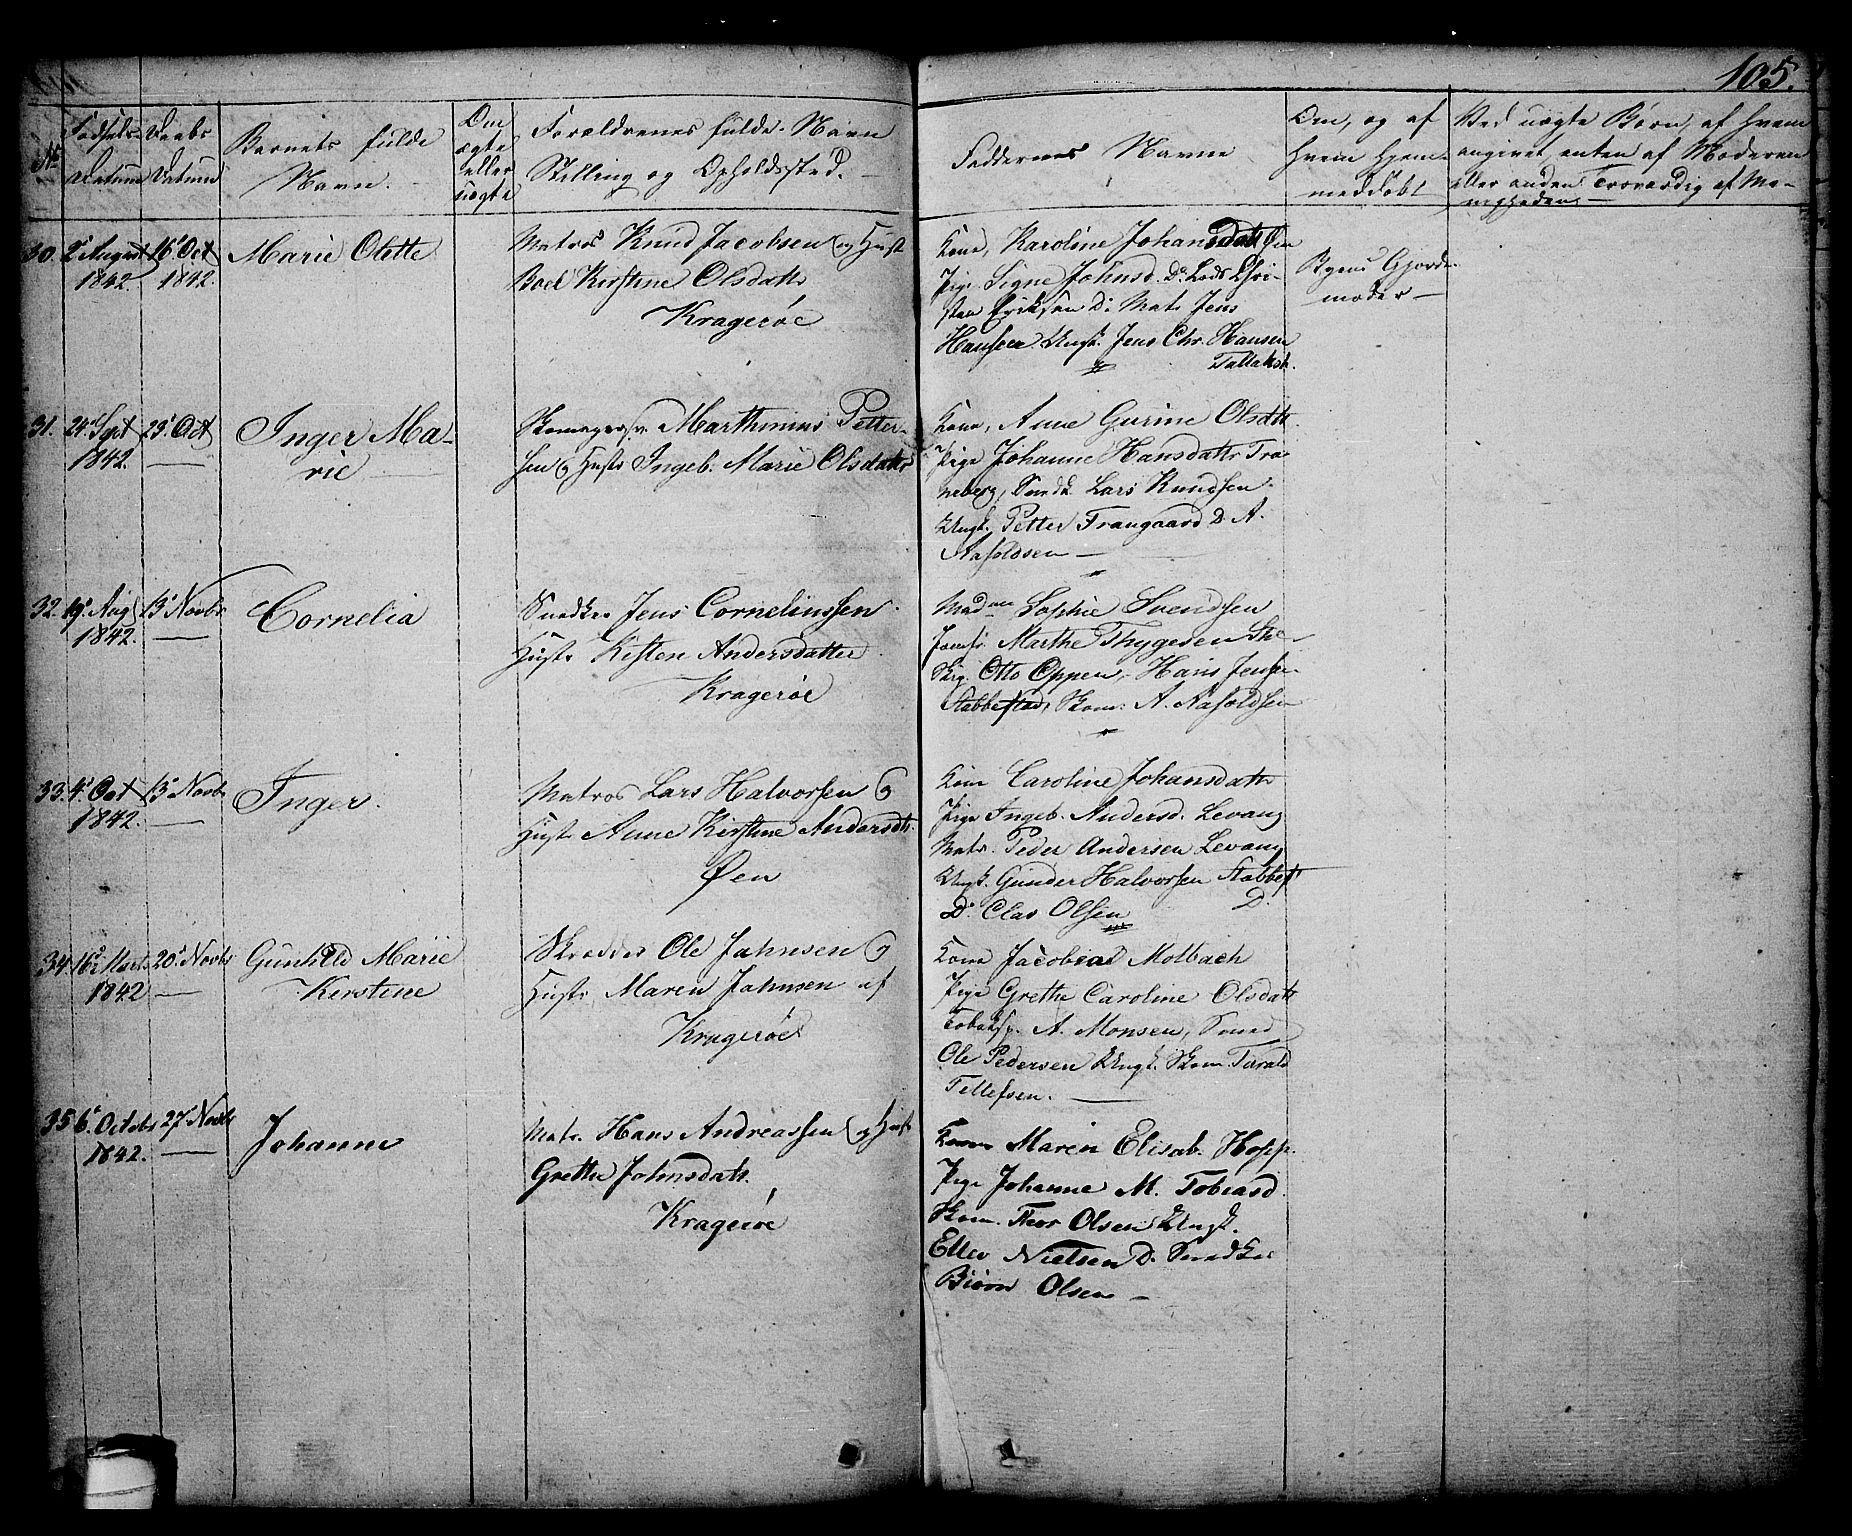 105.
No
Fødsels
Datum
Daabs
Datum
Barnets fulde
Navn.
Om
ægte
eller
uægte
Forældrenes fulde Navn
Stilling og Opholdssted.
Faddernes Navne
Om, og af
hvem hjem-
meddøbt
Ved uægte Børn, af hvem
angivet, enten af Moderen
eller anden Troværdig af Me-
nigheden
30. 2 August 16 Oct Marie Olette
1842. 1842.
Matros Knud Jacobsen og Hust
Boel Kirstine Olsdattr
Kragerøe
Kone, Karoline Johansdatt Øen
Pige Signe Johnsd. Do Lods Chri-
sten Eriksen Do Mats Jens
Hansen Ungk. Jens Chr. Hansen
Tallaksb.
Byens Gjorde-
moder
31. 24 Sept 23 Oct Inger Ma-
1842. rie
Skomagersv. Marthinius Petter-
sen og Hustr Ingeb. Marie Olsdattr
Kone, Anne Gurine Olsdttr
Pige Johanne Hansdattr Tra-
neberg, Snedk Lars Knudsen
Ungk. Petter Frangaard D. A.
Aasoldsen
32. 19 Aug 13 Novbr Cornelia
1842.
Snedker Jens Corneliussen
Hustr Kisten Andersdatter
Kragerøe
Madme Sophie Svendsen
Jomfr Marthe Thygesen Ste-
Skip. Otto Oppen, Hans Jensen
Stabbestad, Skom. A. Aasoldsen
33. 4 Oct 13 Novbr Inger
1842.
Matros Lars Halvorsen og
Hustr Anne Kirstine Andersdtr.
Øen
Kone Caroline Johansdattr
Pige Ingeb. Andersd. Levang
Matr. Peder Andersen Levang
Ungk. Gunder Halvorsen Stabbest
Do Clas Olsen D.
34. 16 Marts 20 Novbr Gunild Marie
1842 Kirstine
Skrædder Ole Jahnsen og
Hustr Maren Jahnsen af
Kragerøe
Kone Jacobine Molbach
Pige Grethe Caroline Olsdatt
Tobaksp. A. Monsen, Smed
Ole Pedersen Ungk. Skom. Tarald
Tellefsen.
35 6 Octobr 27 Novbr Johanne
1842.
Matr. Hans Andreassen og Hust
Grethe Johnsdatt.
Kragerøe
Kone Maren Elisab. Hopp.
Pige Johanne M. Tobiasd.
Skom. Thor Olsen Ungk.
Ellev Nielsen D. Snedker
Biørn Olsen